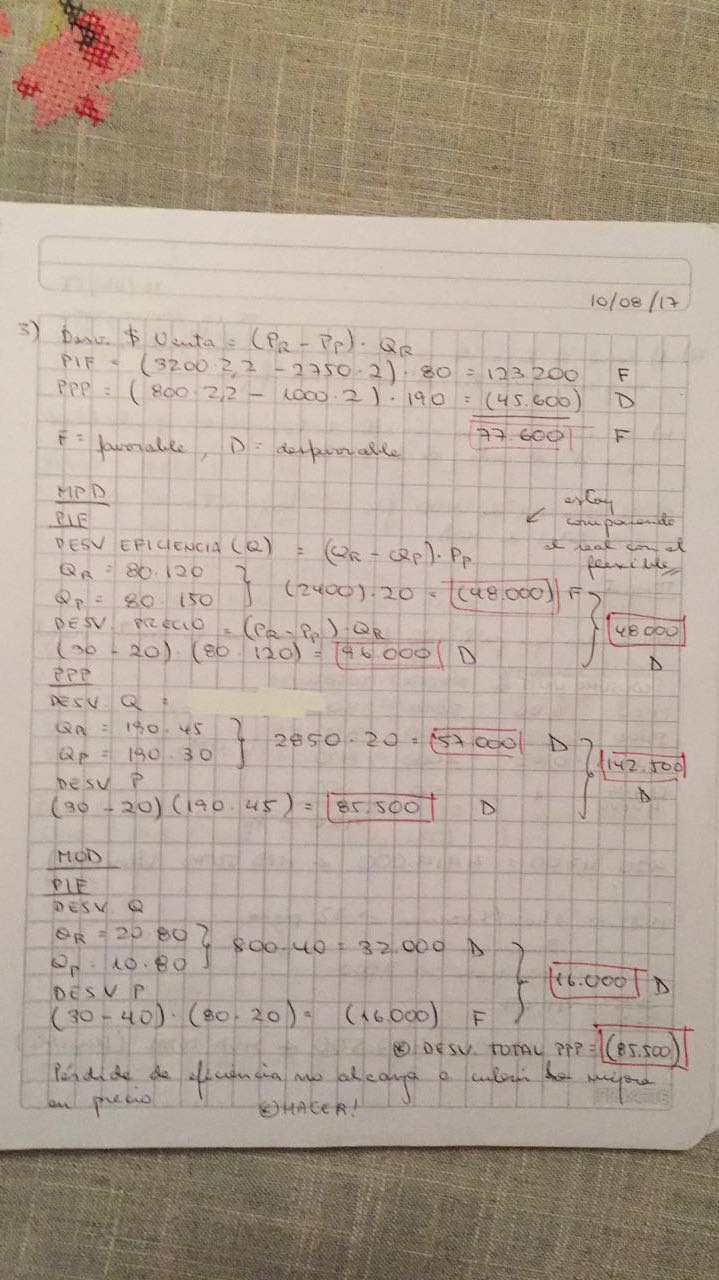 10/08/17
3) Desv. $ Venta = (PR - PP) · QR
PIF = (3200·2,2 - 2750·2) · 80 = 123200 F
PPP = (800·2,2 - 1000·2) · 190 = (45.600) D
77.600 F
F = favorable, D = desfavorable
MPD
PIF
← estoy
comparando
el real con el
flexible
DESV EFICIENCIA (Q) = (QR - QP) · PP
QR = 80·120
QP = 80·150 } (2400)·20 = (48.000) F
DESV. PRECIO = (PR - PP) · QR
(30 - 20) · (80·120) = 96.000 D } 48000 D
PPP
DESV. Q =
QR = 190·45
QP = 190·30 } 2850·20 = 57.000 D
DESV P
(30 - 20) (190·45) = 85.500 D } 142.500 D
MOD
PIF
DESV. Q
QR = 20·80
QP = 10·80 } 800·40 = 32.000 D
DESV P
(30 - 40) · (80·20) = (16.000) F } 16.000 D
⊛ DESV. TOTAL PPP = (85.500)
Pérdida de eficiencia no alcanza a cubrir la mejora
en precio ⊛ HACER!